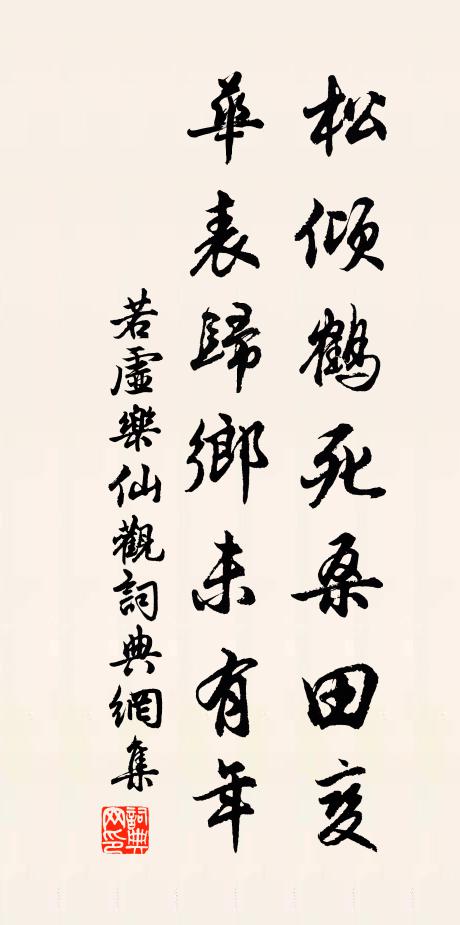 松傾鶴死桑田变
華表歸鄉未有年
若虛樂仙觀詞典網集
詞典网印